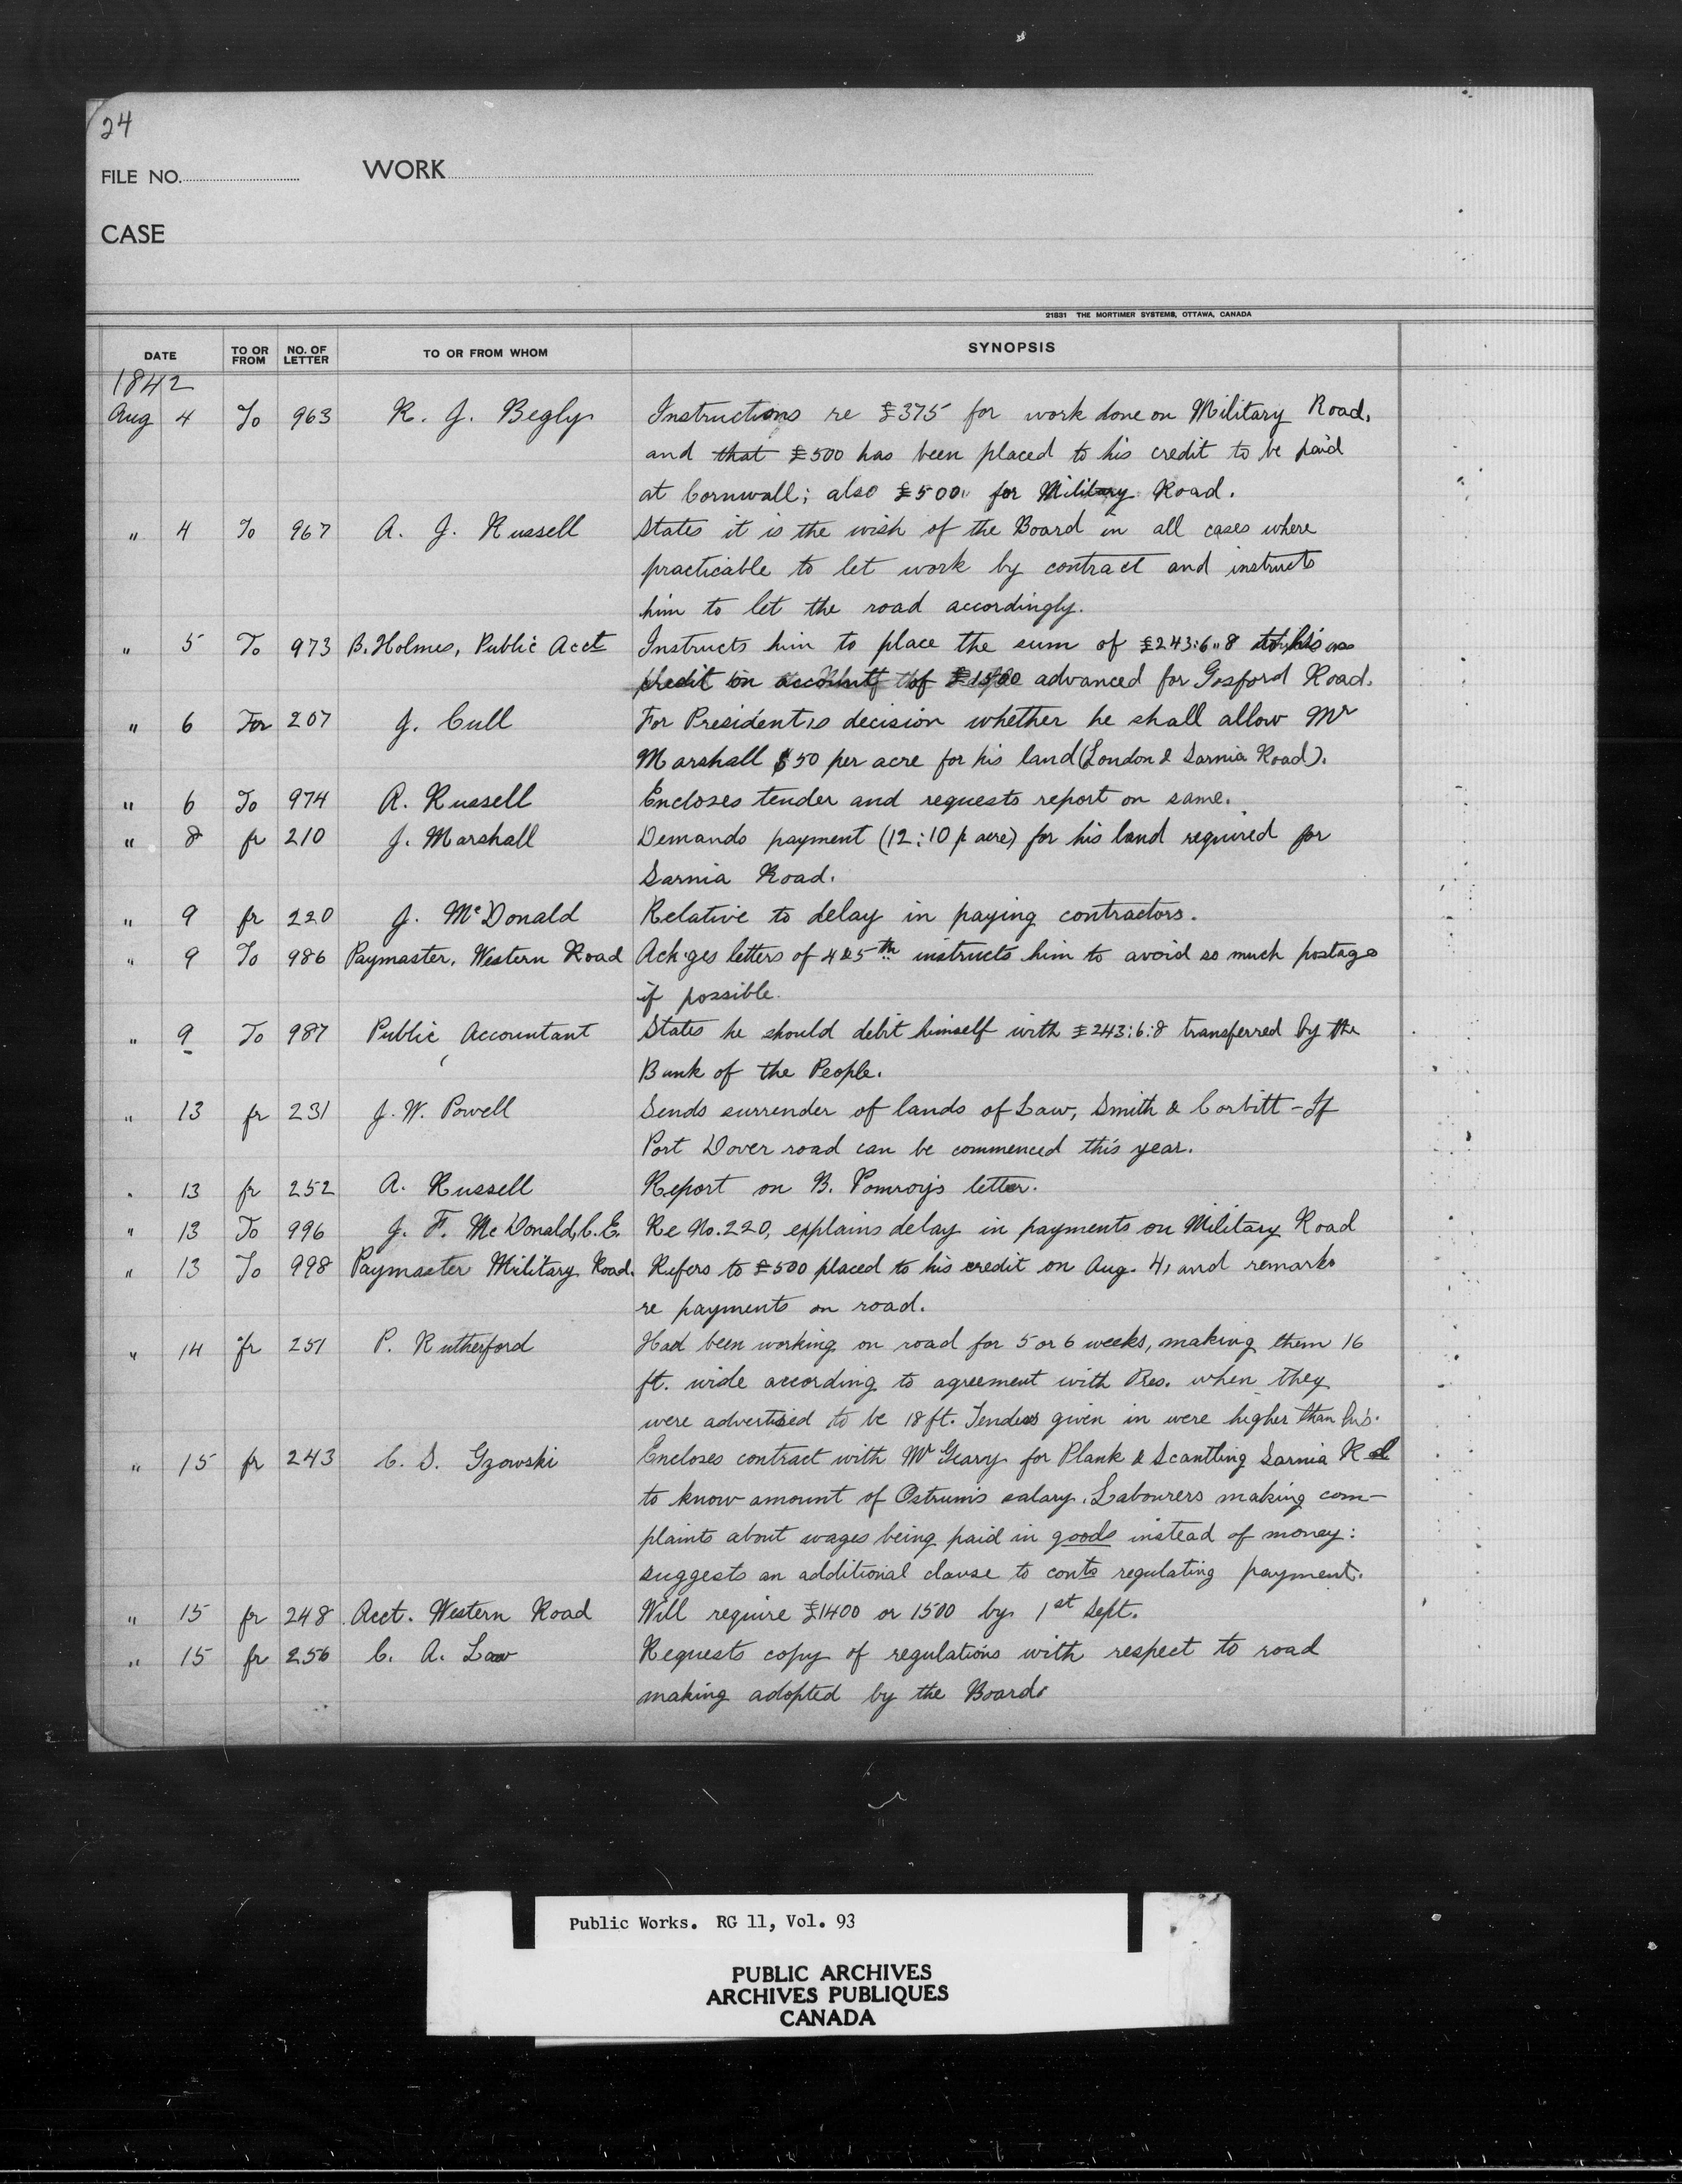 24
FILE NO. WORK
CASE
21831 THE MORTIMER SYSTEMS, OTTAWA, CANADA
DATE TO OR FROM NO. OF LETTER TO OR FROM WHOM SYNOPSIS
1842
Aug 4 To 963 R. J. Begly Instructions re £375 for work done on Military Road,
and that £500 has been placed to his credit to be paid
at Cornwall; also £500 for Military Road.
" 4 To 967 A. J. Russell States it is the wish of the Board in all cases where
practicable to let work by contract and instructs
him to let the road accordingly.
" 5 To 973 B. Holmes, Public Acct Instructs him to place the sum of £243:6"8 to his
credit on account of £1500 advanced for Gosford Road.
" 6 For 207 J. Cull For President's decision whether he shall allow Mr
Marshall $50 per acre for his land (London & Sarnia Road).
" 6 To 974 A. Russell Encloses tender and requests report on same.
" 8 fr 210 J. Marshall Demands payment (12:10 p acre) for his land required for
Sarnia Road.
" 9 fr 220 J. McDonald Relative to delay in paying contractors.
" 9 To 986 Paymaster, Western Road Ack'ges letters of 4 & 5th instructs him to avoid so much postage
if possible.
" 9 To 987 Public Accountant States he should debit himself with £243:6:8 transferred by the
Bank of the People.
" 13 fr 231 J. W. Powell Sends surrender of lands of Law, Smith & Corbitt - If
Port Dover road can be commenced this year.
" 13 fr 252 A. Russell Report on B. Pomroy's letter.
" 13 To 996 J. F. McDonald, C.E. Re No. 220, explains delay in payments on Military Road
" 13 To 998 Paymaster Military Road. Refers to £500 placed to his credit on Aug. 4, and remarks
re payments on road.
" 14 fr 251 P. Rutherford Had been working on road for 5 or 6 weeks, making them 16
ft. wide according to agreement with Pres. when they
were advertised to be 18 ft. Tenders given in were higher than his.
" 15 fr 243 C. S. Gzowski Encloses contract with Mr Geary for Plank & Scantling Sarnia Rd
to know amount of Ostrum's salary. Labourers making com-
plaints about wages being paid in goods instead of money:
suggests an additional clause to conts regulating payment.
" 15 fr 248 Acct. Western Road Will require £1400 or 1500 by 1st Sept.
" 15 fr 256 C. A. Law Requests copy of regulations with respect to road
making adopted by the Board.
Public Works. RG 11, Vol. 93
PUBLIC ARCHIVES
ARCHIVES PUBLIQUES
CANADA